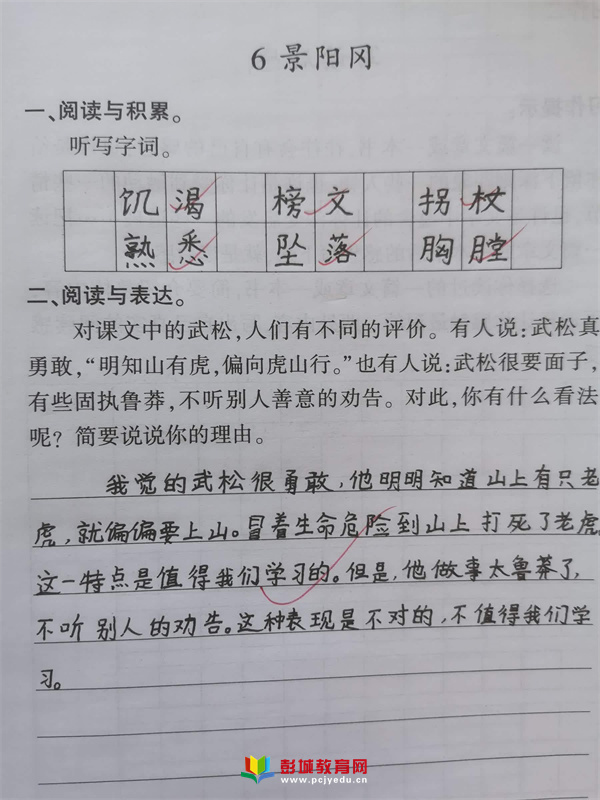 6 景阳冈
一、阅读与积累。
听写字词。
饥渴 榜文 拐杖
熟悉 坠落 胸膛
二、阅读与表达。
对课文中的武松,人们有不同的评价。有人说:武松真
勇敢,“明知山有虎,偏向虎山行。”也有人说:武松很要面子,
有些固执鲁莽,不听别人善意的劝告。对此,你有什么看法
呢?简要说说你的理由。
我觉的武松很勇敢,他明明知道山上有只老
虎,就偏偏要上山。冒着生命危险到山上打死了老虎,
这一特点是值得我们学习的。但是,他做事太鲁莽了,
不听别人的劝告。这种表现是不对的,不值得我们学
习。
彭城教育网
www.pcjyedu.cn